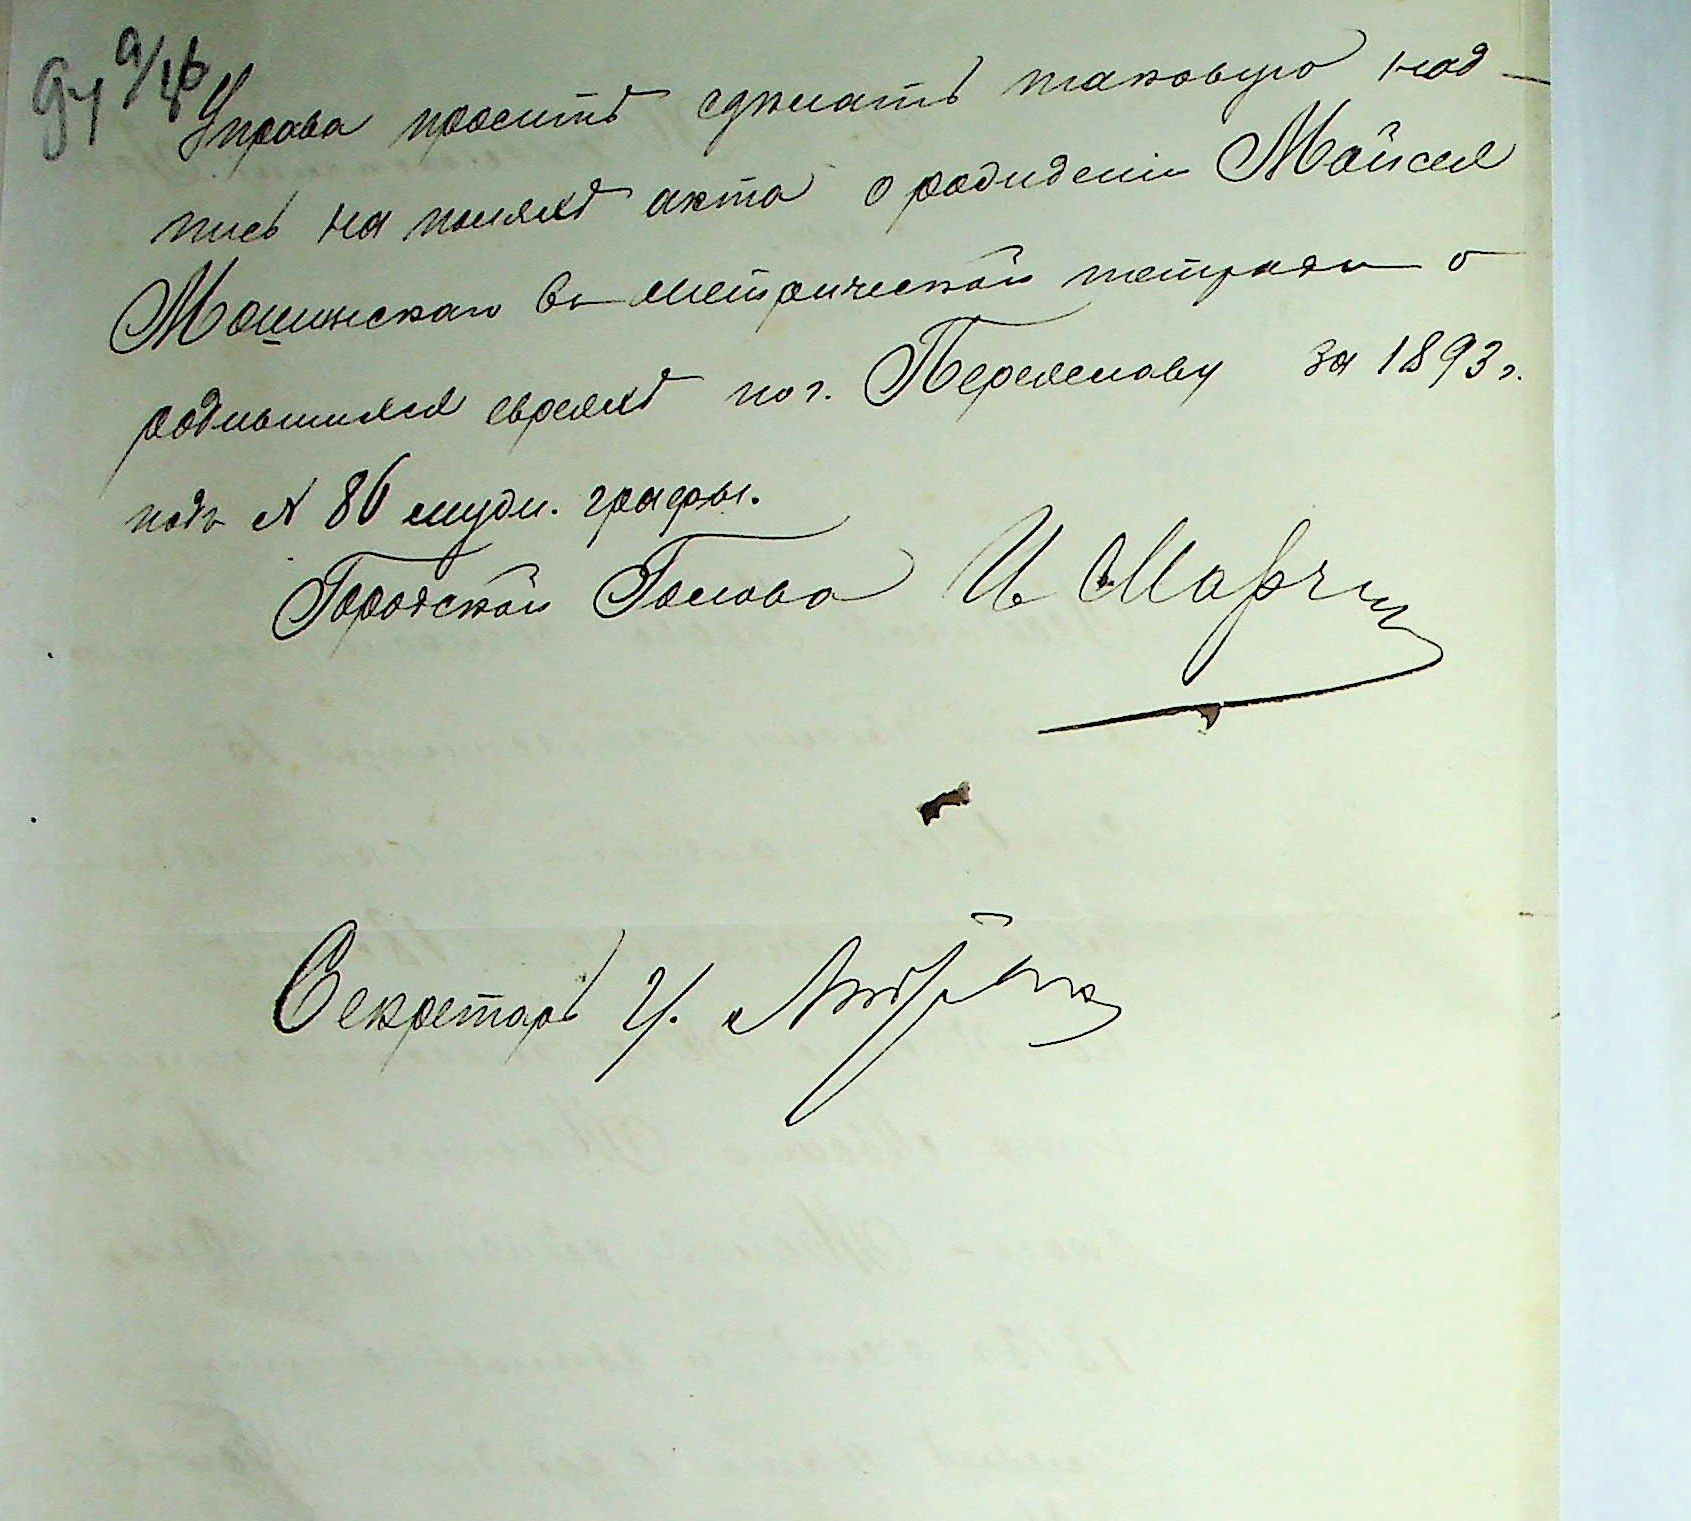 Управа просить сдѣлать таковую над-
пись на поляхъ акта о рожденіи Мойсея
Мошинскаго въ метрической тетради о
родившихся евреяхъ по г. Переяславу за 1893 г.
подъ № 86 мужс. графы.
Городской Голова
Секретарь